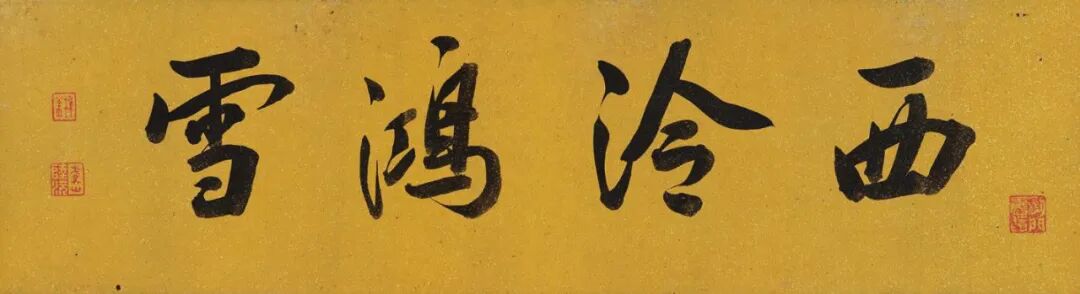 西泠鴻雪